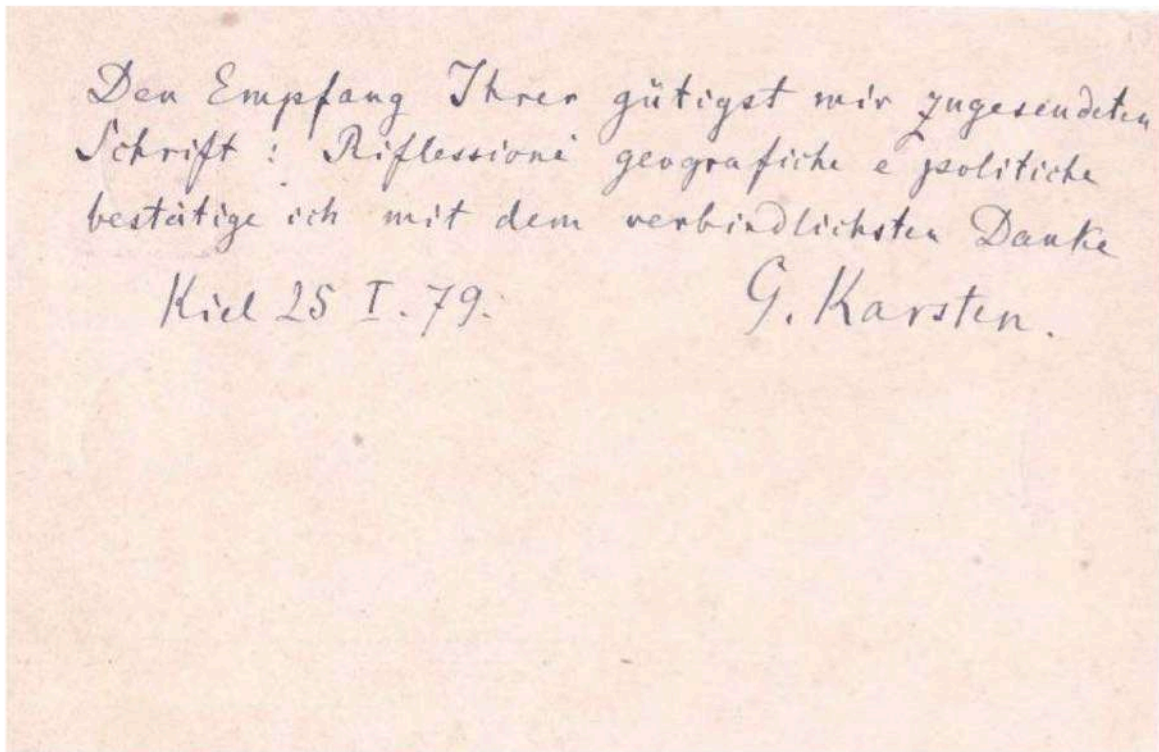 Den Empfang Ihrer gütigst mir zugesendeten
Schrift : Riflessioni geografiche e politiche
bestätige ich mit dem verbindlichsten Danke
Kiel 25 I. 79. G. Karsten.